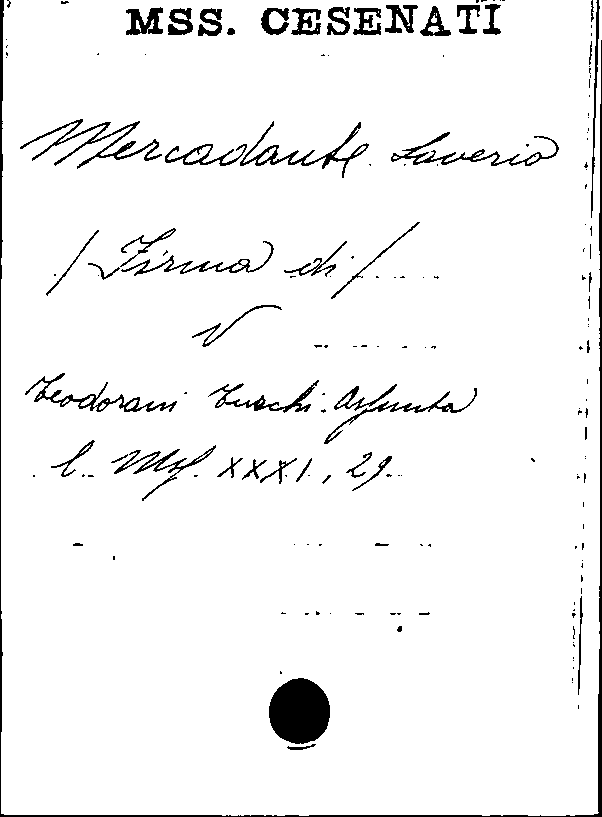 MSS. CESENATI
Mercadante Saverio
/ Firma di /
V
Teodorani Turchi Assunta
C. Mss. XXXI, 29